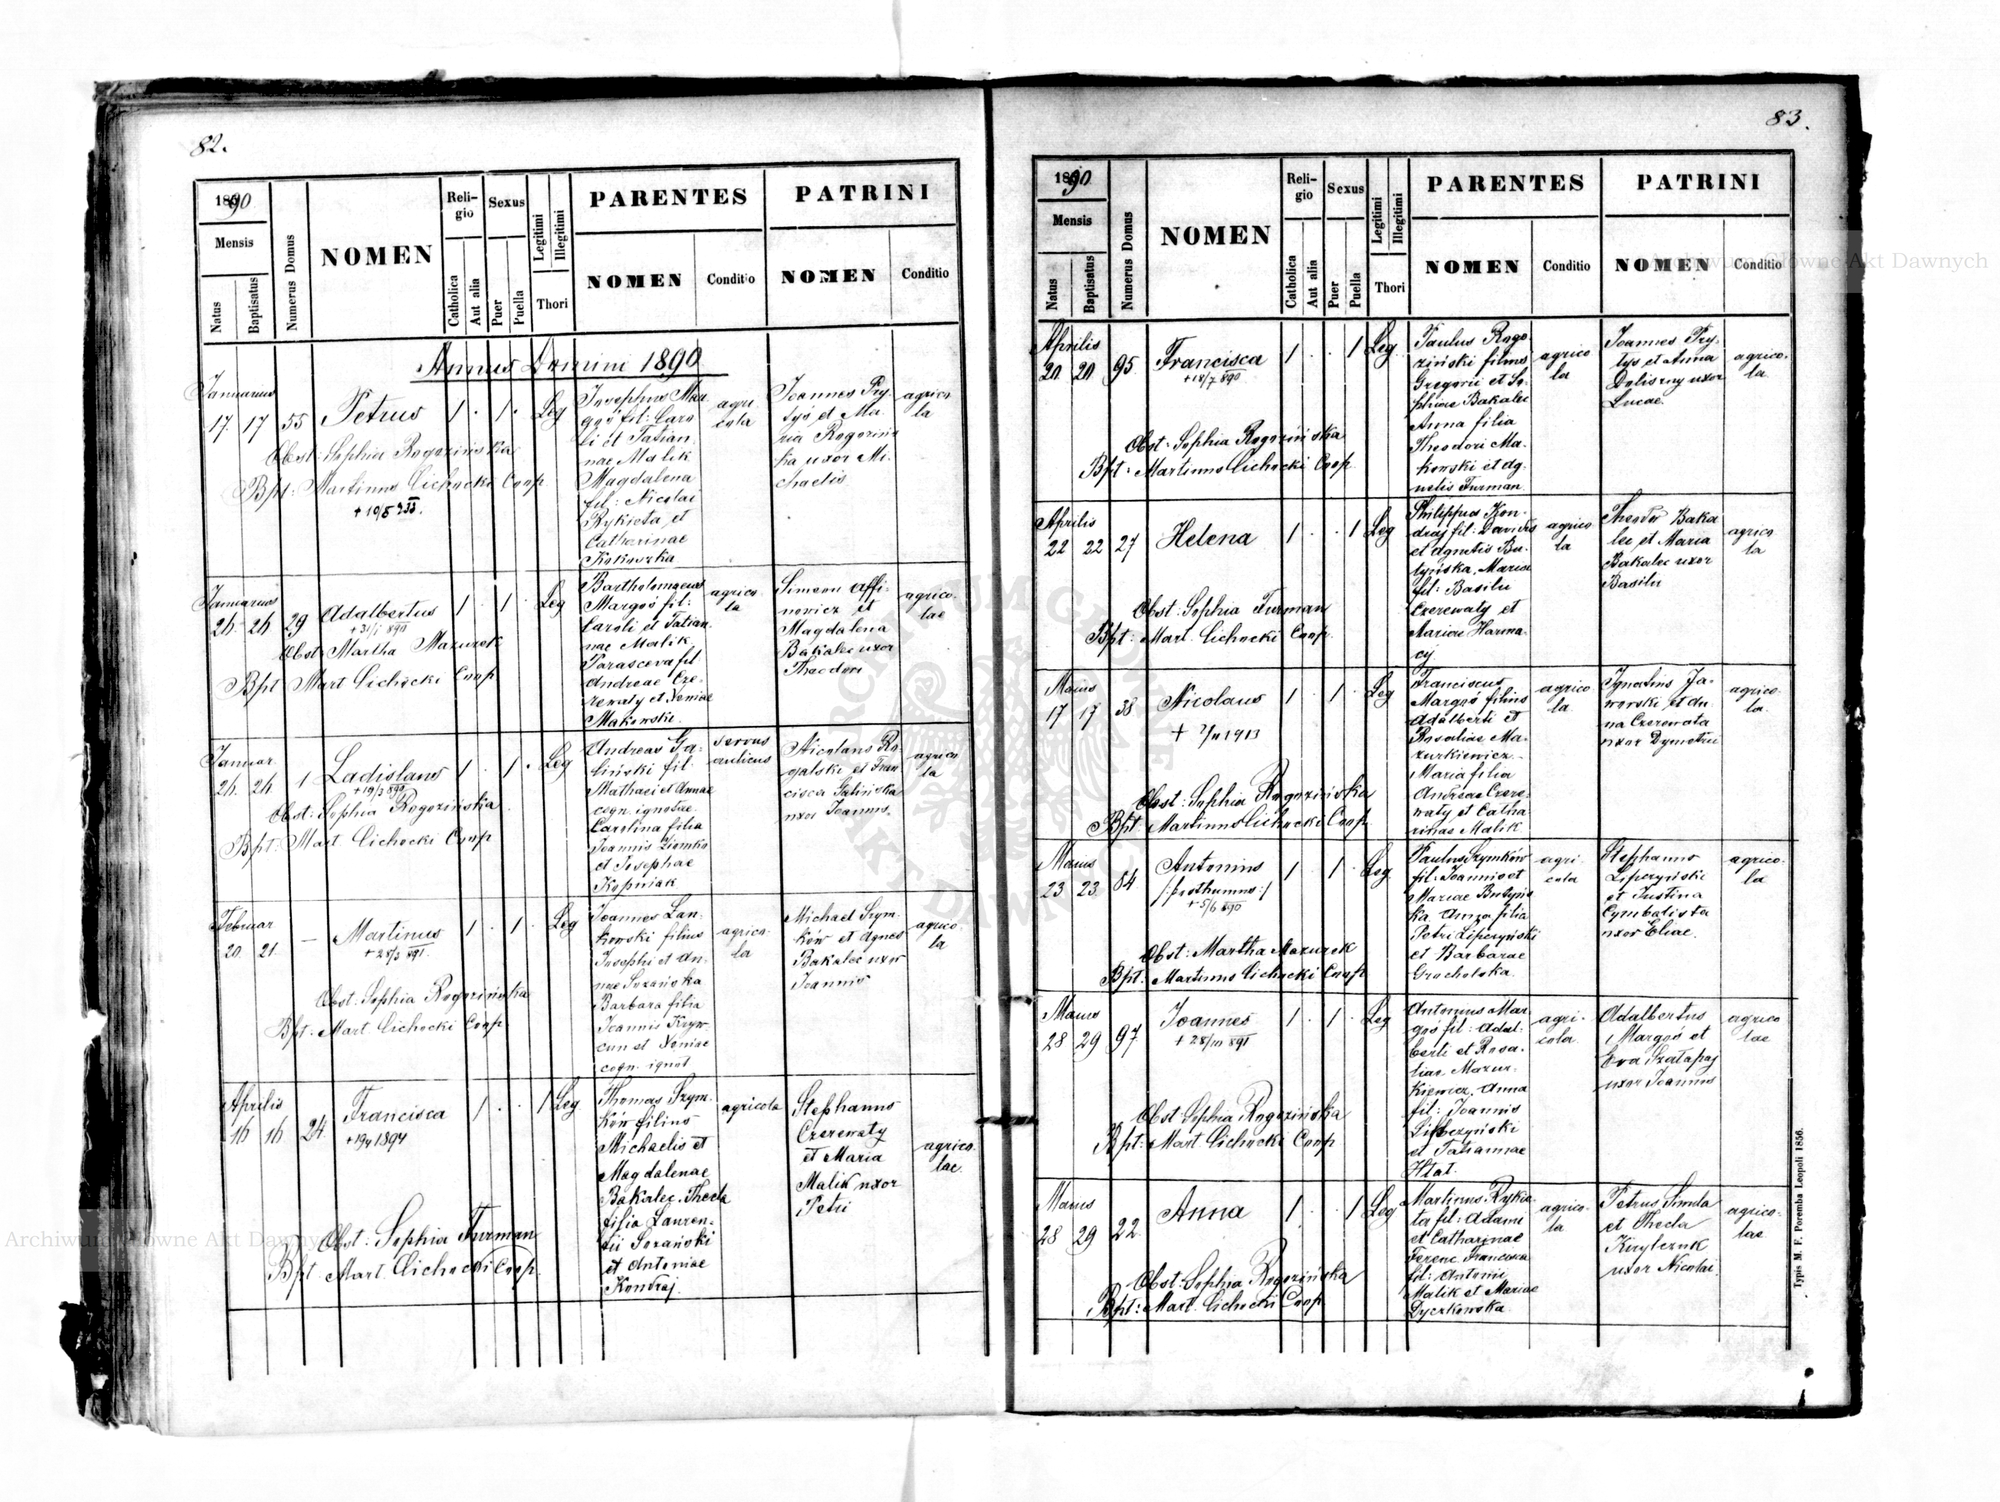 82.
1890
Mensis
Natus
Baptisatus
Numerus Domus
NOMEN
Reli-
gio
Catholica
Aut alia
Sexus
Puer
Puella
Legitimi
Illegitimi
Thori
PARENTES
NOMEN
Conditio
PATRINI
NOMEN
Conditio
Annus Domini 1890
Januarius
17. 17 55 Petrus 1 . 1 . Leg
Obst: Sophia Rogozińska
Bpt: Martinus Cichocki Coop
Josephus Mar
goś fil: Caro
li et Tatian
nae Malik
Magdalena
fil: Nicolai
Rykieta et
Catharinae
agri-
cola
Joannes Pry
tys et Ma-
ria Rogoziń
ska uxor Mi-
chaelis
agrico
la
Januarius
26 26 29 Adalbertus 1 . 1 . Leg
+ 31/1 890
Obst: Martha Mazurek
Bpt: Mart Cichocki Coop
Bartholomaeus
Margoś fil:
Caroli et Tatian
nae Malik.
Parasceva fil
Andreae Cze-
rewaty et Xeniae
agrico-
la
Simeon Affi-
nowicz et
Magdalena
Bakalec uxor
Theodori
agrico-
lae
Januar
26. 26 1 Ladislaus 1 . 1 . Leg
+ 19/3 890
Obst: Sophia Rogozińska
Bpt: Mart Cichocki Coop
Andreas Ga-
liński fil
Mathaei et Annae
cogn. ignotae.
Carolina filia
Joannis Ziomko
et Josephae
Kopniak
servus
aulicus
Nicolaus Ro
galski et Fran
cisca Galińska
uxor Joannis.
agrico
la
Februar
20. 21. — Martinus 1 . 1 . Leg
+ 28/3 891
Obst: Sophia Rogozińska
Bpt: Mart Cichocki Coop
Joannes Lan-
kowski filius
Josephi et An-
nae Sozańska
Barbara filia
Joannis Kryw-
cun et Xeniae
cogn. ignot
agrico-
la
Michael Szym-
ków et Agnes
Bakalec uxor
Joannis
agrico-
la
Aprilis
16 16 24. Francisca 1 . . 1 Leg
Obst: Sophia Furman
Bpt: Mart. Cichocki Coop.
Thomas Szym-
ków filius
Michaelis et
Magdalenae
Bakalec. Thecla
filia Lauren-
tii Sozański
et Antoniae
Kondraj.
agricola
Stephanus
Czerewaty
et Maria
Malik uxor
Petri
agrico-
lae.
83.
1890
Mensis
Natus
Baptisatus
Numerus Domus
NOMEN
Reli-
gio
Catholica
Aut alia
Sexus
Puer
Puella
Legitimi
Illegitimi
Thori
PARENTES
NOMEN
Conditio
PATRINI
NOMEN
Conditio
Aprilis
20. 20 95. Francisca 1 . . 1 Leg
+ 18/7 890
Obst: Sophia Rogozińska
Bpt: Martinus Cichocki Coop.
Paulus Rogo
ziński filius
Gregorii et So-
phiae Bakalec
Anna filia
Theodori Ma-
kowski et Ag-
netis Furman
agrico
la
Joannes Pry-
tys et Anna
uxor
Lucae.
agrico-
la.
Aprilis
22 22 27 Helena 1 . . 1 Leg
Obst: Sophia Furman
Bpt: Mart. Cichocki Coop.
Philippus Kon-
draj fil: Davidis
et Agnetis Bu-
tyńska. Maria
fil: Basilii
Czerewaty et
Mariae Harma-
cij
agrico-
la
Theodor Baka
lec et Maria
Bakalec uxor
Basilii
agrico
la
Maius
17 17 38 Nicolaus 1 . 1 . Leg
Obst: Sophia Rogozińska
Bpt: Martinus Cichocki Coop.
Franciscus
Margoś filius
Adalberti et
Rosaliae Ma-
zurkiewicz.
Maria filia
Andreae Czere-
waty et Catha-
rinae Malik.
agrico-
la.
Ignatius Ja-
worski et An-
na Czerewata
uxor Dymetrii
agrico-
la.
Maius
23 23. 84 Antonius 1 . 1 . Leg
/:posthumus:/
+ 5/6 890
Obst: Martha Mazurek
Bpt: Martinus Cichocki Coop
Paulus Szymków
fil: Joannis et
Mariae Butyńs
ka. Anna filia
Petri Lipczyński
et Barbarae
Grocholska.
agri-
cola
Stephanus
Lipczyński
et Justina
Cymbalista
uxor Eliae.
agrico-
la
Maius
28 29 97. Joannes 1 . 1 . Leg
+ 28/III 891
Obst Sophia Rogozińska
Bpt: Mart Cichocki Coop
Antonius Mar-
goś fil: Adal-
berti et Rosa-
liae Mazur-
kiewicz. Anna
fil: Joannis
Lipczyński
et Tatiannae
agri-
cola.
Adalbertus
Margoś et
Eva
uxor Joannis
agrico
lae
Maius
28 29 22. Anna 1 . . 1 Leg
Obst: Sophia Rogozińska
Bpt: Mart. Cichocki Coop
Martinus Rykie
ta fil: Adami
et Catharinae
Ferenc. Francisca
fil: Antonii
Malik et Mariae
Dyczkowska
agrico-
la
Petrus Smula
et Thecla
uxor Nicolai.
agrico-
lae.
Typis M. F. Poremba Leopoli 1856.
ARCHIWUM GŁÓWNE AKT DAWNYCH